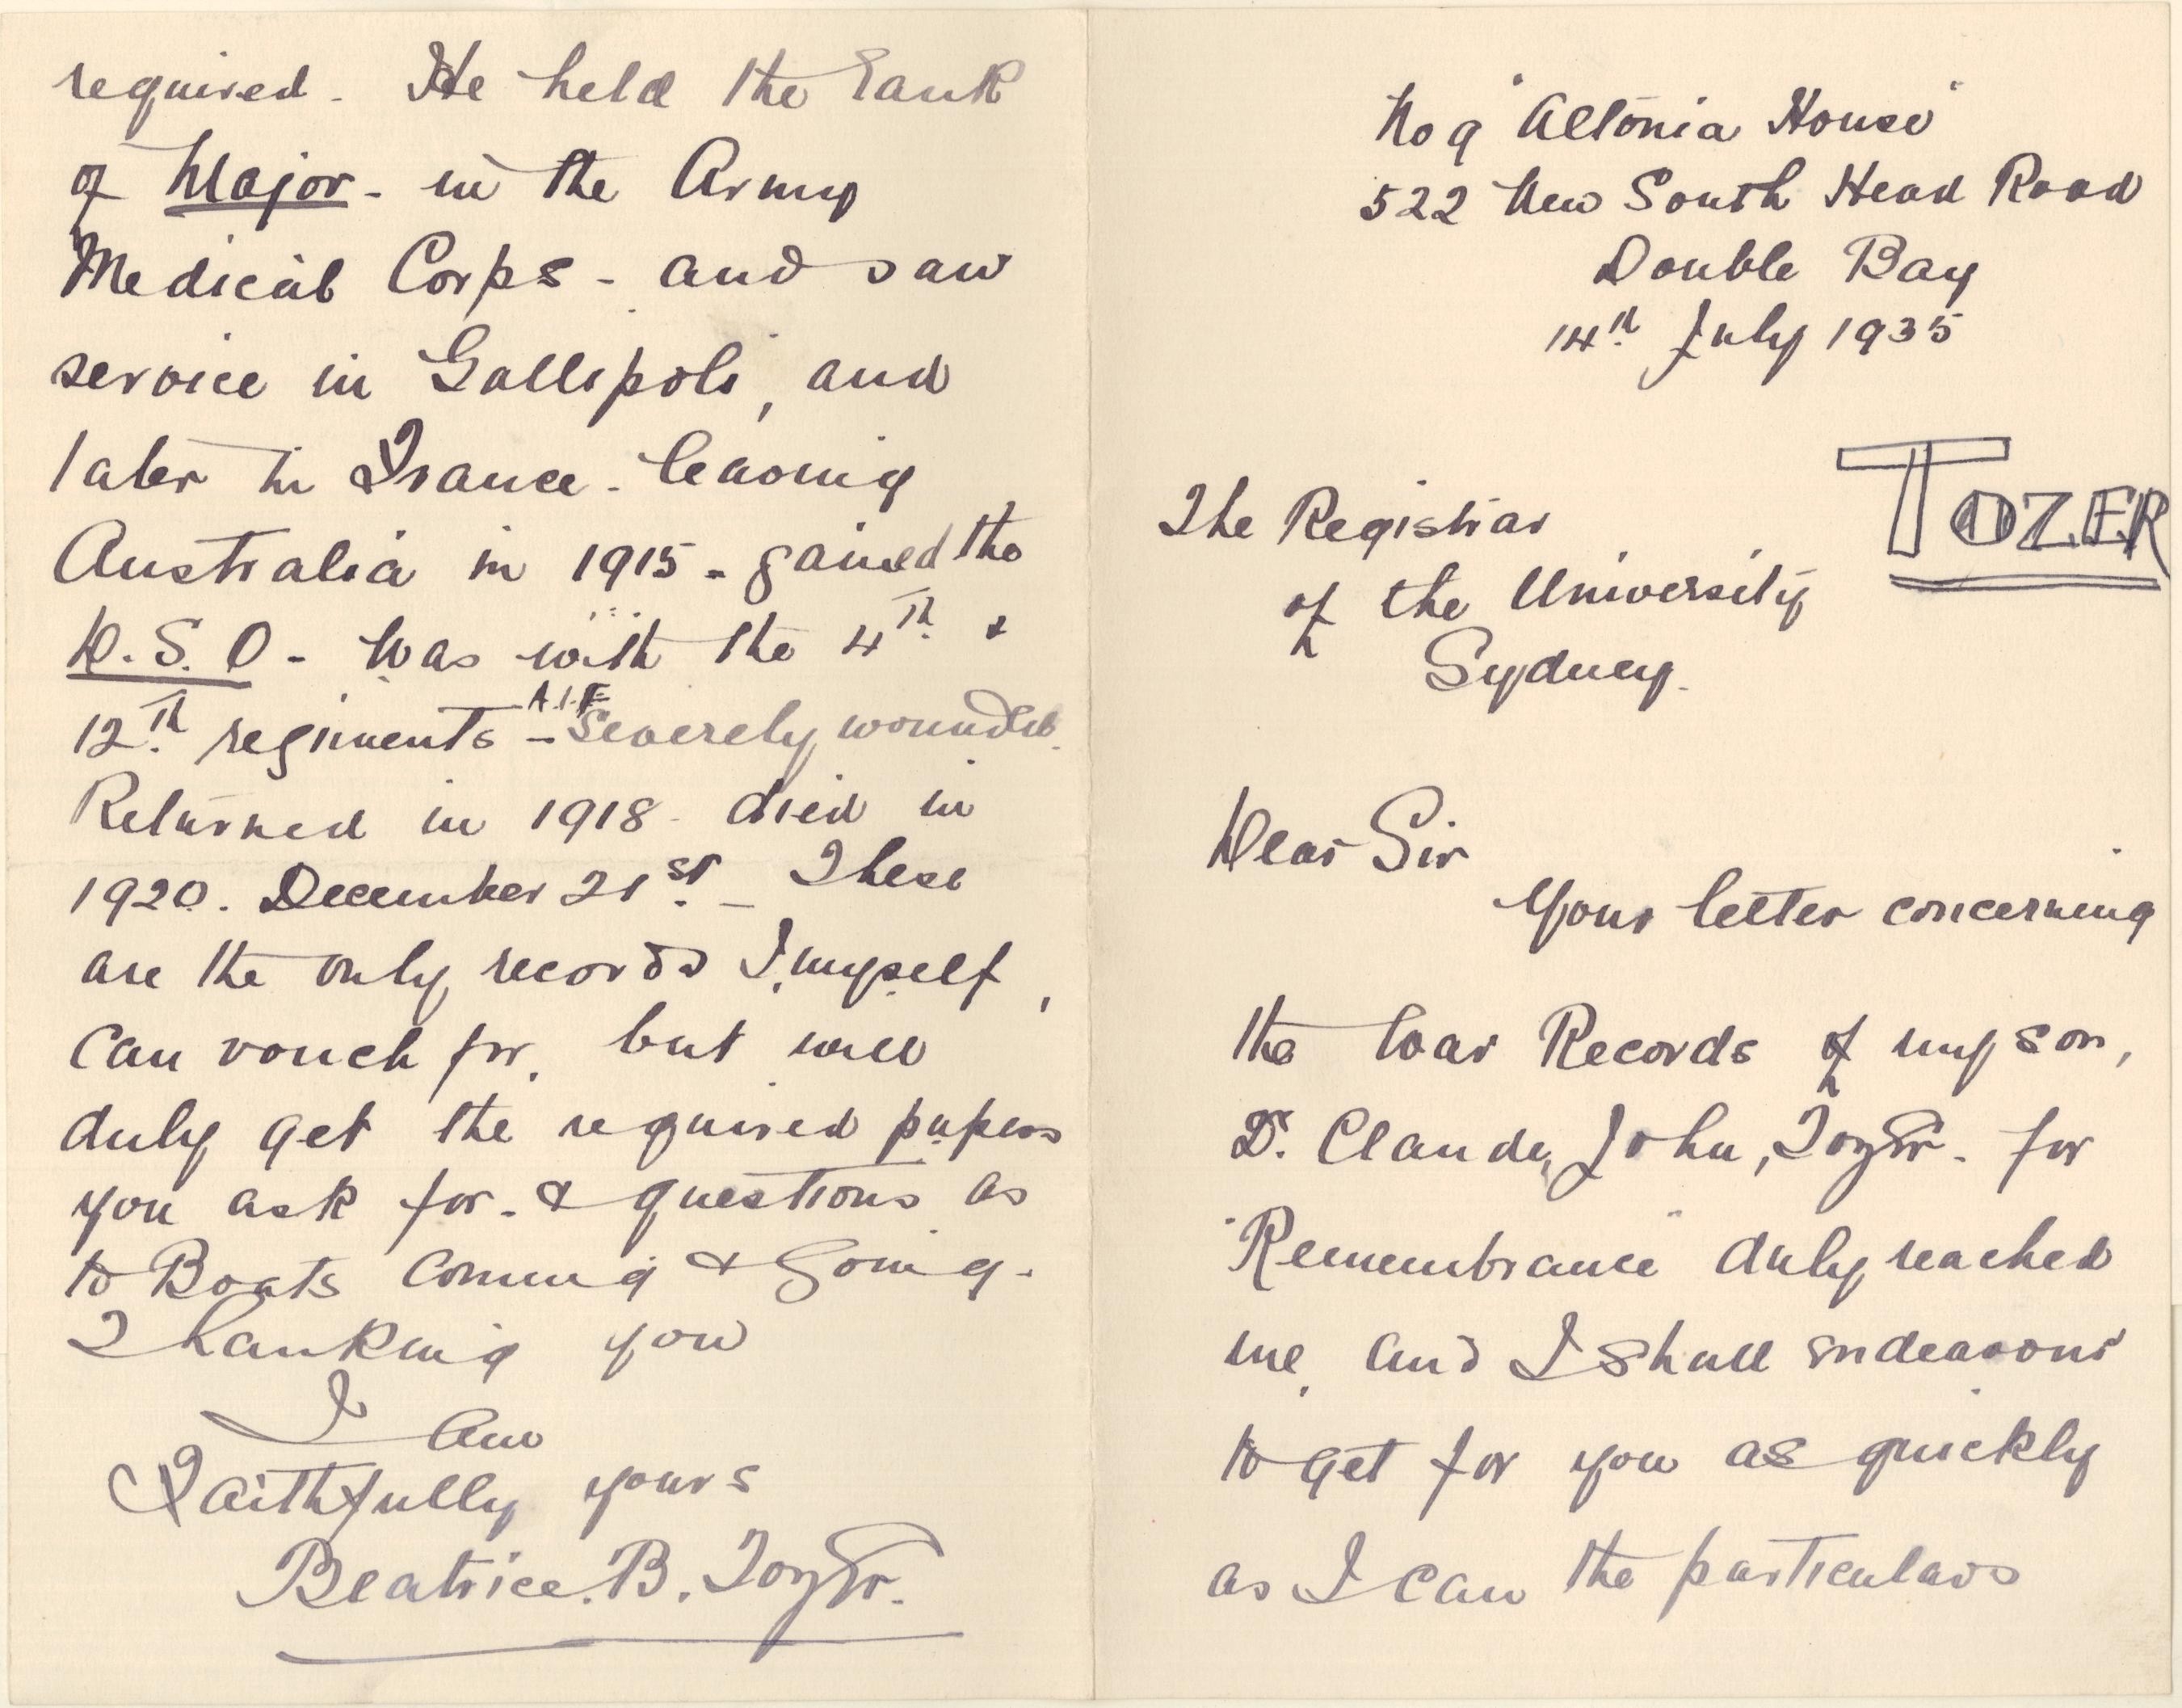 No 9 "Altonia House"
522 New South Head Road
Double Bay
14th July 1935
TOZER
The Registrar
of the University
Sydney.
Dear Sir
Your letter concerning
the War Records of my son,
Dr. Claude, John, Tozer. for
"Remembrance" duly reached
me, and I shall endeavour
to get for you as quickly
as I can the particulars
required. He held the rank
of Major - in the Army
Medical Corps - and saw
service in Gallipoli, and
later in France - leaving
Australia in 1915 - gained the
D.S.O - Was with the 4th &
12th regiments - A.I.F Severely wounded.
Returned in 1918 - died in
1920. December 21st - These
are the only records I, myself,
can vouch for, but will
duly get the required papers
you ask for - & questions as
to Boats coming & going.
Thanking you
I am
Faithfully yours
Beatrice. B. Tozer.